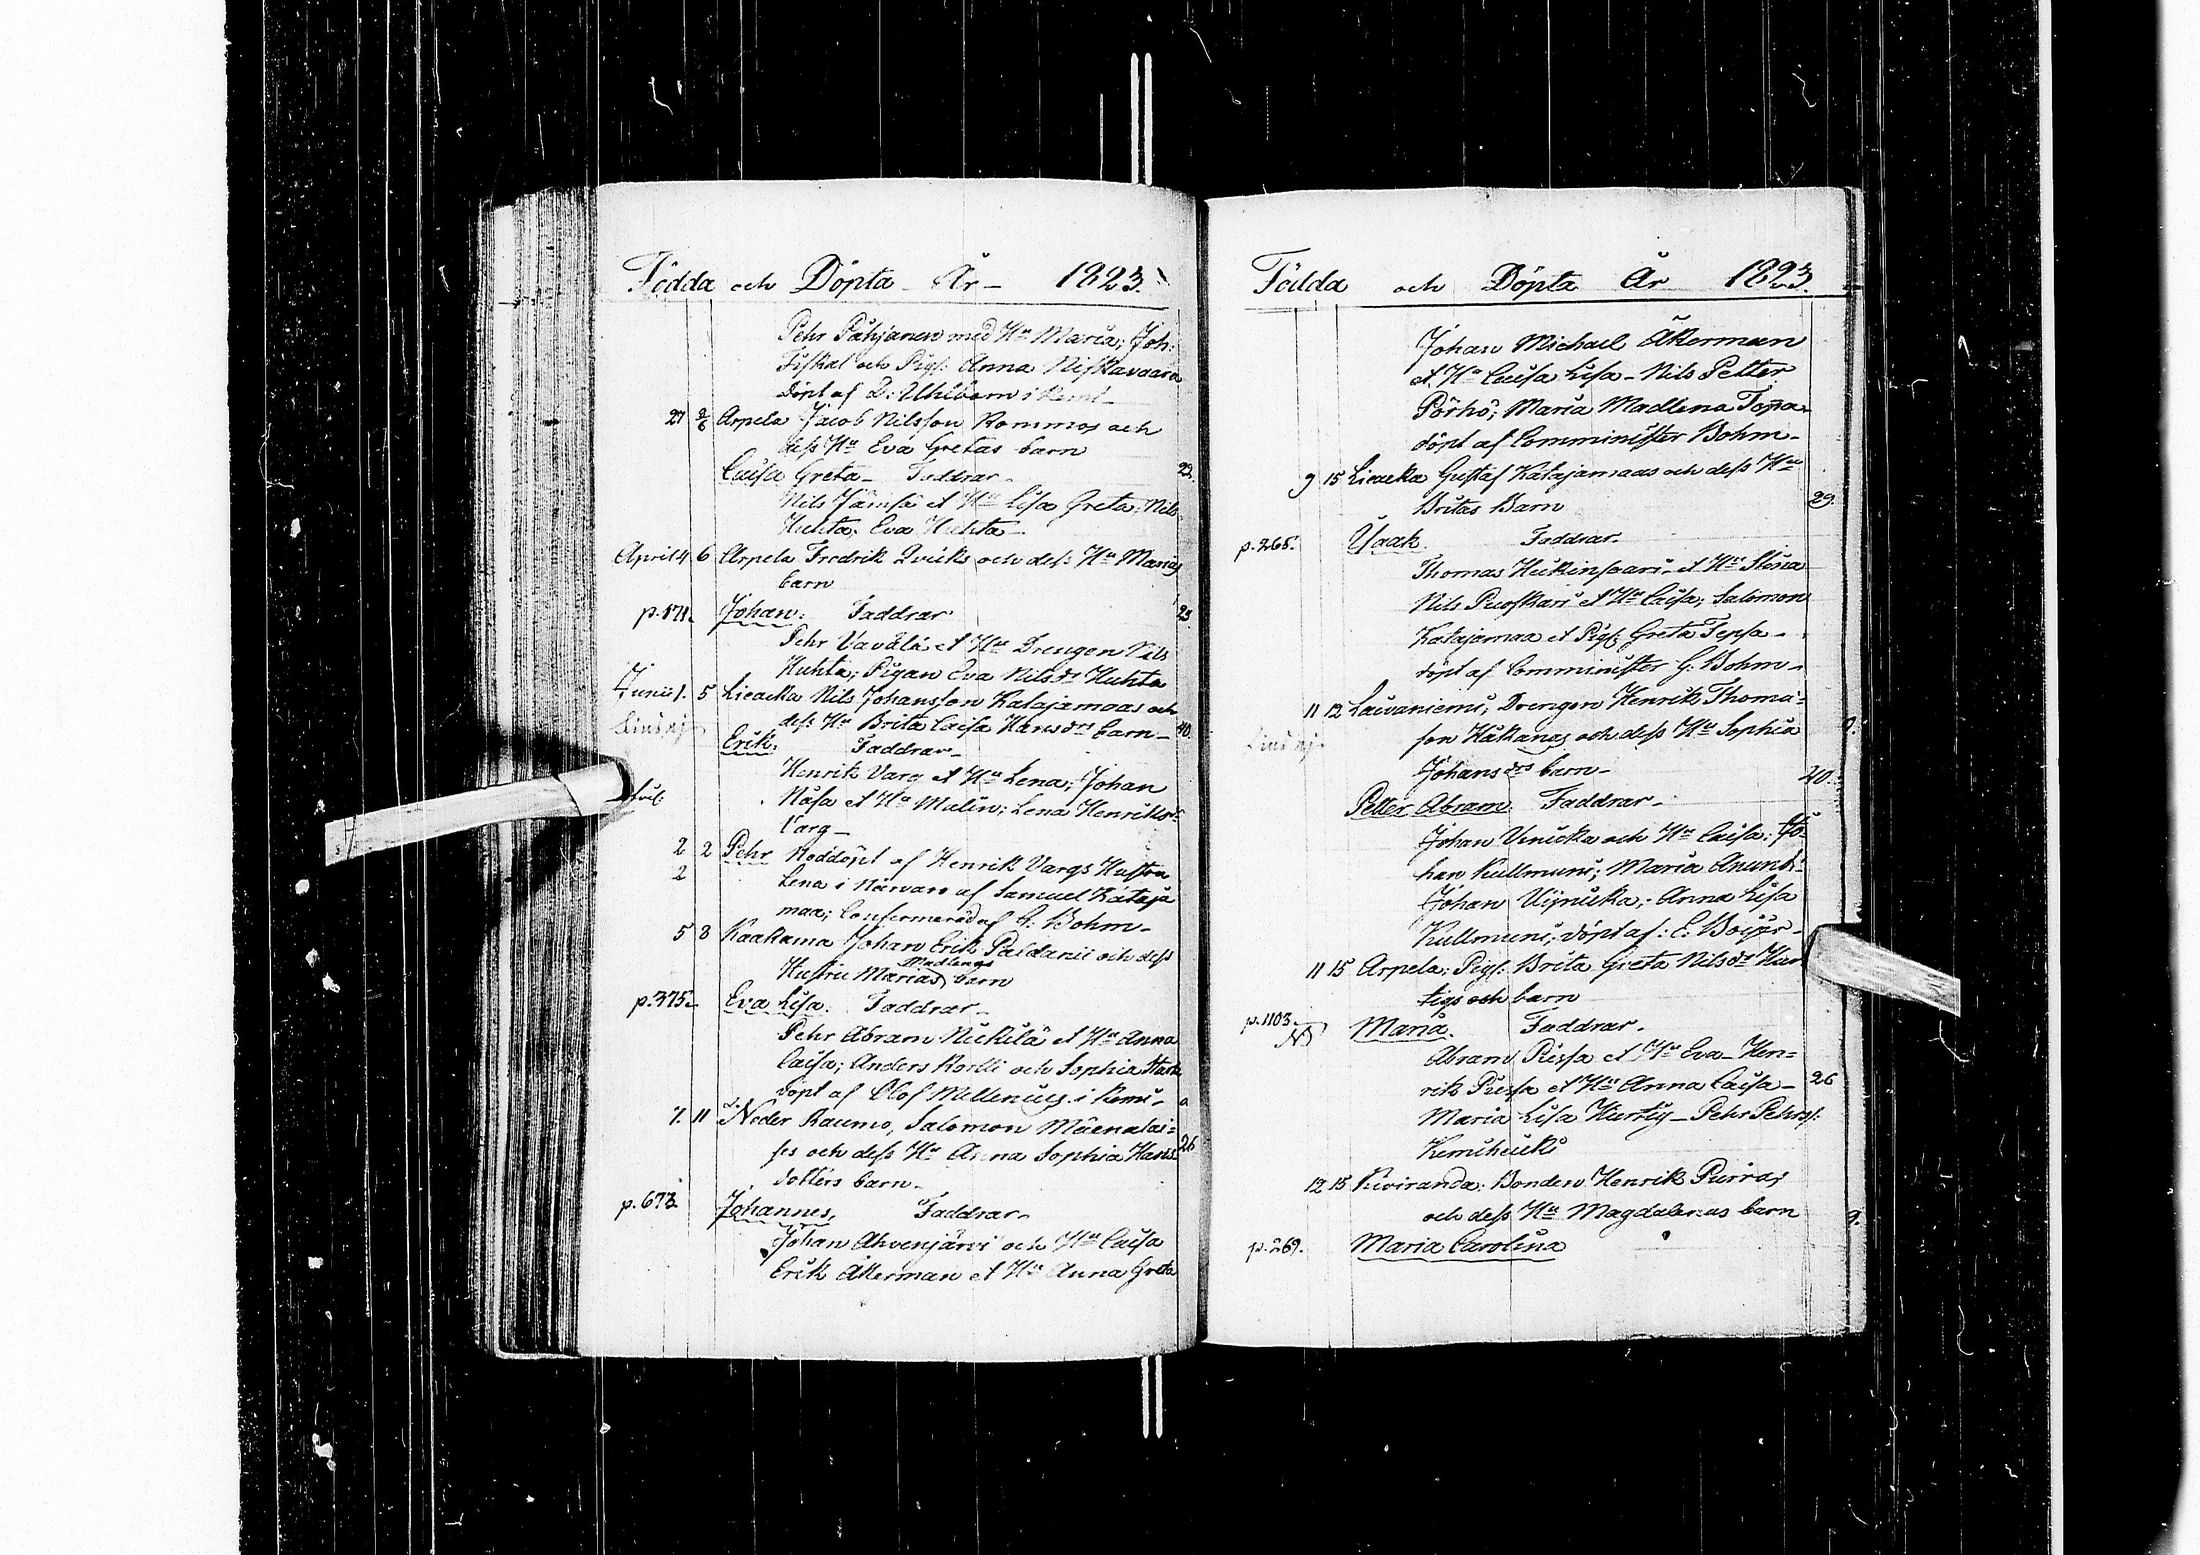 Födda och Döpta År 1823.
Pehr Pahjanen med Hu Maria; Joh:
Fiskal och Pig: Anna Niskavaara
döpt af D: Uhlbom i Kemi
27 2/6 Arpela Jacob Nilsson Rommos och
dess Hu Eva Gretas barn
Caisa Greta Faddrar 23.
Nils Jämsä et Hu Lisa Greta; Nils
Huhta; Eva Huhta
April 4 6 Arpela Fredrik Qvicks och dess Hu Marias
barn
p. 171. Johan. Faddrar 23.
Pehr Vavälä et Hu Drengen Nils
Huhta; Pigan Eva Nilsdr Huhta
Junii 1. 5 Liedakka Nils Johansson Katajamaas och
dess Hu Brita Caisa Hansdrs barn 40
Erik. Faddrar
Henrik Varg et Hu Lena; Johan
Näsa et Hu Malin; Lena Henriksdr
Varg
2 2 Pehr Nöddöpt af Henrik Vargs Hustru
2 Lena i närvaro af Samuel Kataja
maa; Confirmerad af G. Bohm
5 8 Kaakama Johan Erik Paldanii och dess
Hustru Marias Madlenas barn
p. 375 Eva Lisa. Faddrar
Pehr Abram Nickilä et Hu Anna
Caisa; Anders Kortti och Sophia
döpt af Olof Mellenius i Kemi
7. 11 Neder Raumo, Salomon Mäenalai=
ses och dess Hu Anna Sophia Hans= 26
dotters barn
p. 673 Johannes. Faddrar
Johan Ahvenjärvi och Hu Caisa
Erik Åkerman et Hu Anna Greta
Födda och Döpta År 1823.
Johan Michael Åkerman
et Hu Caisa Lisa Nils Petter
Pörhö; Maria Madlena Topa
döpt af Comminister Bohm
9 15 Liedakka Gustaf Katajamaas och dess Hu
Britas Barn 29.
p. 265. Isaak. Faddrar.
Thomas Heikinsaari et Hu Stina
Nils Puoskari et Hu Caisa; Salomon
Katajamaa et Pig: Greta Tepsa
döpt af Comminister G. Bohm
11 12 Laivaniemi, Drengen Henrik Thoma=
son Häkanas och dess Hu Sophia
Johansdrs barn 40
Petter Abram. Faddrar
Johan Vinickka och Hu Caisa; Jo=
han Kullmuni; Maria
Johan Vijnicka; Anna Lisa
Kullmuni; döpt af: C. Boijer
11 15 Arpela; Pig: Brita Greta Nilsdr Hur
tigs och barn
p. 1103. Maria. Faddrar.
Abram Piessa et Hu Eva Hen=
rik Piessa et Hu Anna Caisa 26
Maria Lisa Hurtig Pehr Pehrss:
Kemiheikki
12 15 Kiviranda; Bonden Henrik Purras
och dess Hu Magdalenas barn 9.
p. 269. Maria Carolina